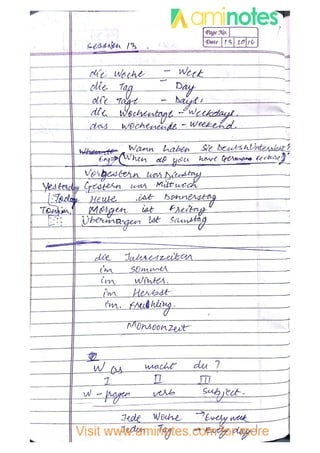 aminotes
Page No.
Date 13 10 16
session 13.
die Woche - Week
die Tag - Day
die Tage - Days
die Wochentage - Weekdays.
das Wochenende - Weekend.
Wann haben Sie Deutschunterricht?
(When do you have German lecture)
Vorgestern war Dienstag
Yesterday Gestern war Mittwoch
Today Heute ist Donnerstag
Morgen ist Freitag
Übermorgen ist Samstag
die Jahreszeiten
im Sommer
im Winter.
im Herbst
im Fruhling.
Monsoonzeit
Was macht du?
I II III
W-fragen verb subject.
Jede Woche → Every week
Jeden Tag → Every day
Visit www.aminotes.com for more